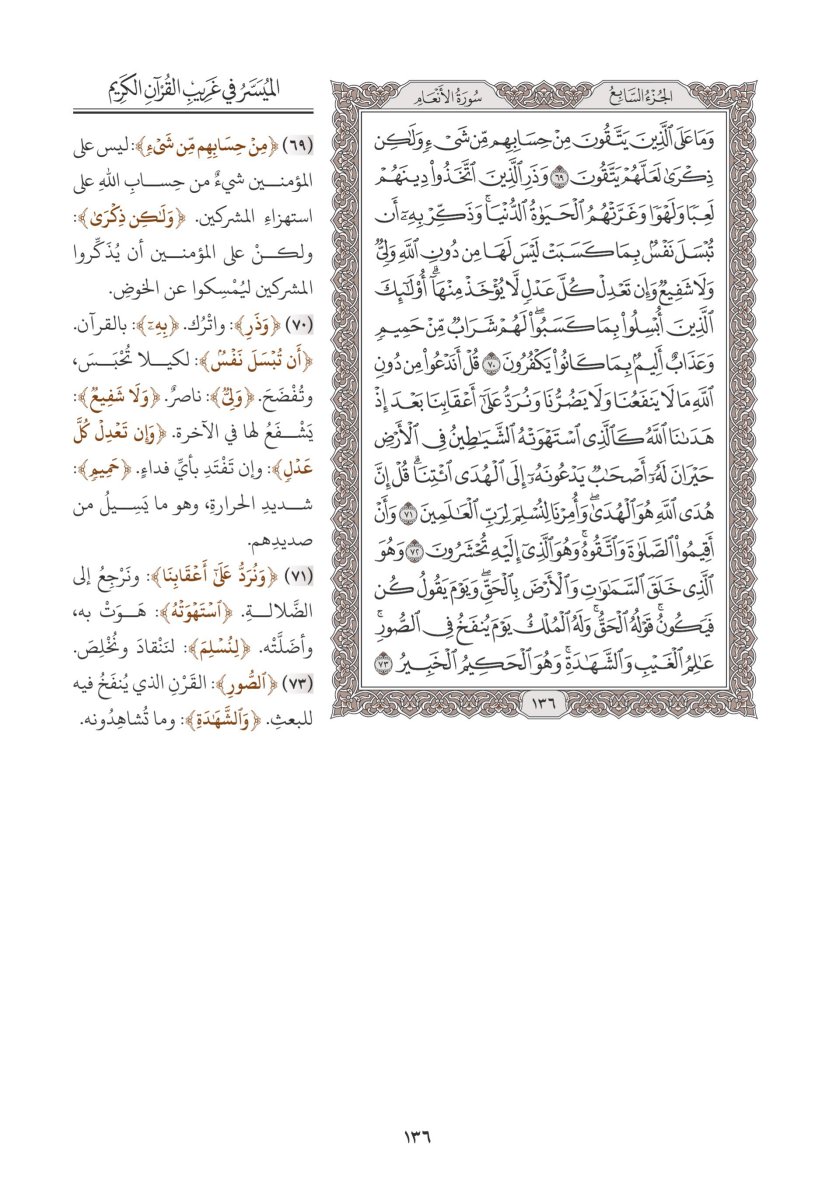 الجُزْءُ السَّابِعُ
سُورَةُ الأَنْعَامِ
وَمَا عَلَى ٱلَّذِينَ يَتَّقُونَ مِنْ حِسَابِهِم مِّن شَىْءٍ وَلَٰكِن
ذِكْرَىٰ لَعَلَّهُمْ يَتَّقُونَ ٦٩ وَذَرِ ٱلَّذِينَ ٱتَّخَذُوا۟ دِينَهُمْ
لَعِبًا وَلَهْوًا وَغَرَّتْهُمُ ٱلْحَيَوٰةُ ٱلدُّنْيَا ۚ وَذَكِّرْ بِهِۦٓ أَن
تُبْسَلَ نَفْسٌۢ بِمَا كَسَبَتْ لَيْسَ لَهَا مِن دُونِ ٱللَّهِ وَلِىٌّ
وَلَا شَفِيعٌ وَإِن تَعْدِلْ كُلَّ عَدْلٍ لَّا يُؤْخَذْ مِنْهَآ ۗ أُو۟لَٰٓئِكَ
ٱلَّذِينَ أُبْسِلُوا۟ بِمَا كَسَبُوا۟ ۖ لَهُمْ شَرَابٌ مِّنْ حَمِيمٍ
وَعَذَابٌ أَلِيمٌۢ بِمَا كَانُوا۟ يَكْفُرُونَ ٧٠ قُلْ أَنَدْعُوا۟ مِن دُونِ
ٱللَّهِ مَا لَا يَنفَعُنَا وَلَا يَضُرُّنَا وَنُرَدُّ عَلَىٰٓ أَعْقَابِنَا بَعْدَ إِذْ
هَدَىٰنَا ٱللَّهُ كَٱلَّذِى ٱسْتَهْوَتْهُ ٱلشَّيَٰطِينُ فِى ٱلْأَرْضِ
حَيْرَانَ لَهُۥٓ أَصْحَٰبٌ يَدْعُونَهُۥٓ إِلَى ٱلْهُدَى ٱئْتِنَا ۗ قُلْ إِنَّ
هُدَى ٱللَّهِ هُوَ ٱلْهُدَىٰ ۖ وَأُمِرْنَا لِنُسْلِمَ لِرَبِّ ٱلْعَٰلَمِينَ ٧١ وَأَنْ
أَقِيمُوا۟ ٱلصَّلَوٰةَ وَٱتَّقُوهُ ۚ وَهُوَ ٱلَّذِىٓ إِلَيْهِ تُحْشَرُونَ ٧٢ وَهُوَ
ٱلَّذِى خَلَقَ ٱلسَّمَٰوَٰتِ وَٱلْأَرْضَ بِٱلْحَقِّ ۖ وَيَوْمَ يَقُولُ كُن
فَيَكُونُ ۚ قَوْلُهُ ٱلْحَقُّ ۚ وَلَهُ ٱلْمُلْكُ يَوْمَ يُنفَخُ فِى ٱلصُّورِ ۚ
عَٰلِمُ ٱلْغَيْبِ وَٱلشَّهَٰدَةِ ۚ وَهُوَ ٱلْحَكِيمُ ٱلْخَبِيرُ ٧٣
١٣٦
المُيَسَّرُ في غَرِيبِ القُرْآنِ الكَرِيمِ
(٦٩) ﴿مِنْ حِسَابِهِم مِّن شَىْءٍ﴾: ليس على
المؤمنين شيءٌ من حِسابِ اللهِ على
استهزاءِ المشركين. ﴿وَلَٰكِن ذِكْرَىٰ﴾:
ولكنْ على المؤمنين أن يُذَكِّروا
المشركين ليُمْسِكوا عن الخوضِ.
(٧٠) ﴿وَذَرِ﴾: واتْرُك. ﴿بِهِۦٓ﴾: بالقرآن.
﴿أَن تُبْسَلَ نَفْسٌۢ﴾: لكيلا تُحْبَسَ،
وتُفْضَحَ. ﴿وَلِىٌّ﴾: ناصرٌ. ﴿وَلَا شَفِيعٌ﴾:
يَشْفَعُ لها في الآخرة. ﴿وَإِن تَعْدِلْ كُلَّ
عَدْلٍ﴾: وإن تَفْتَدِ بأيِّ فداءٍ. ﴿حَمِيمٍ﴾:
شديدِ الحرارةِ، وهو ما يَسِيلُ من
صديدِهم.
(٧١) ﴿وَنُرَدُّ عَلَىٰٓ أَعْقَابِنَا﴾: ونَرْجِعُ إلى
الضَّلالةِ. ﴿ٱسْتَهْوَتْهُ﴾: هَوَتْ به،
وأضَلَّتْه. ﴿لِنُسْلِمَ﴾: لنَنْقادَ ونُخْلِصَ.
(٧٣) ﴿ٱلصُّورِ﴾: القَرْنِ الذي يُنفَخُ فيه
للبعثِ. ﴿وَٱلشَّهَٰدَةِ﴾: وما تُشاهِدُونه.
١٣٦